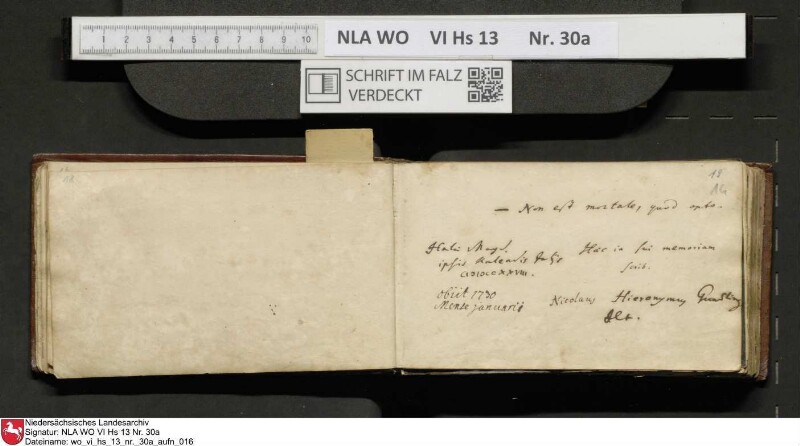 1 2 3 4 5 6 7 8 9 10
NLA WO VI Hs 13 Nr. 30a
SCHRIFT IM FALZ
VERDECKT
18
14
— Non est mortale, quod opto.
Halæ Magd.
ipsis Kalendis
MDCCXXVIII.
Hæc in sui memoriam
scrib.
obiit 1730
Mense januarii
Nicolaus Hieronymus Gundling
Niedersächsisches Landesarchiv
Signatur: NLA WO VI Hs 13 Nr. 30a
Dateiname: wo_vi_hs_13_nr._30a_aufn_016